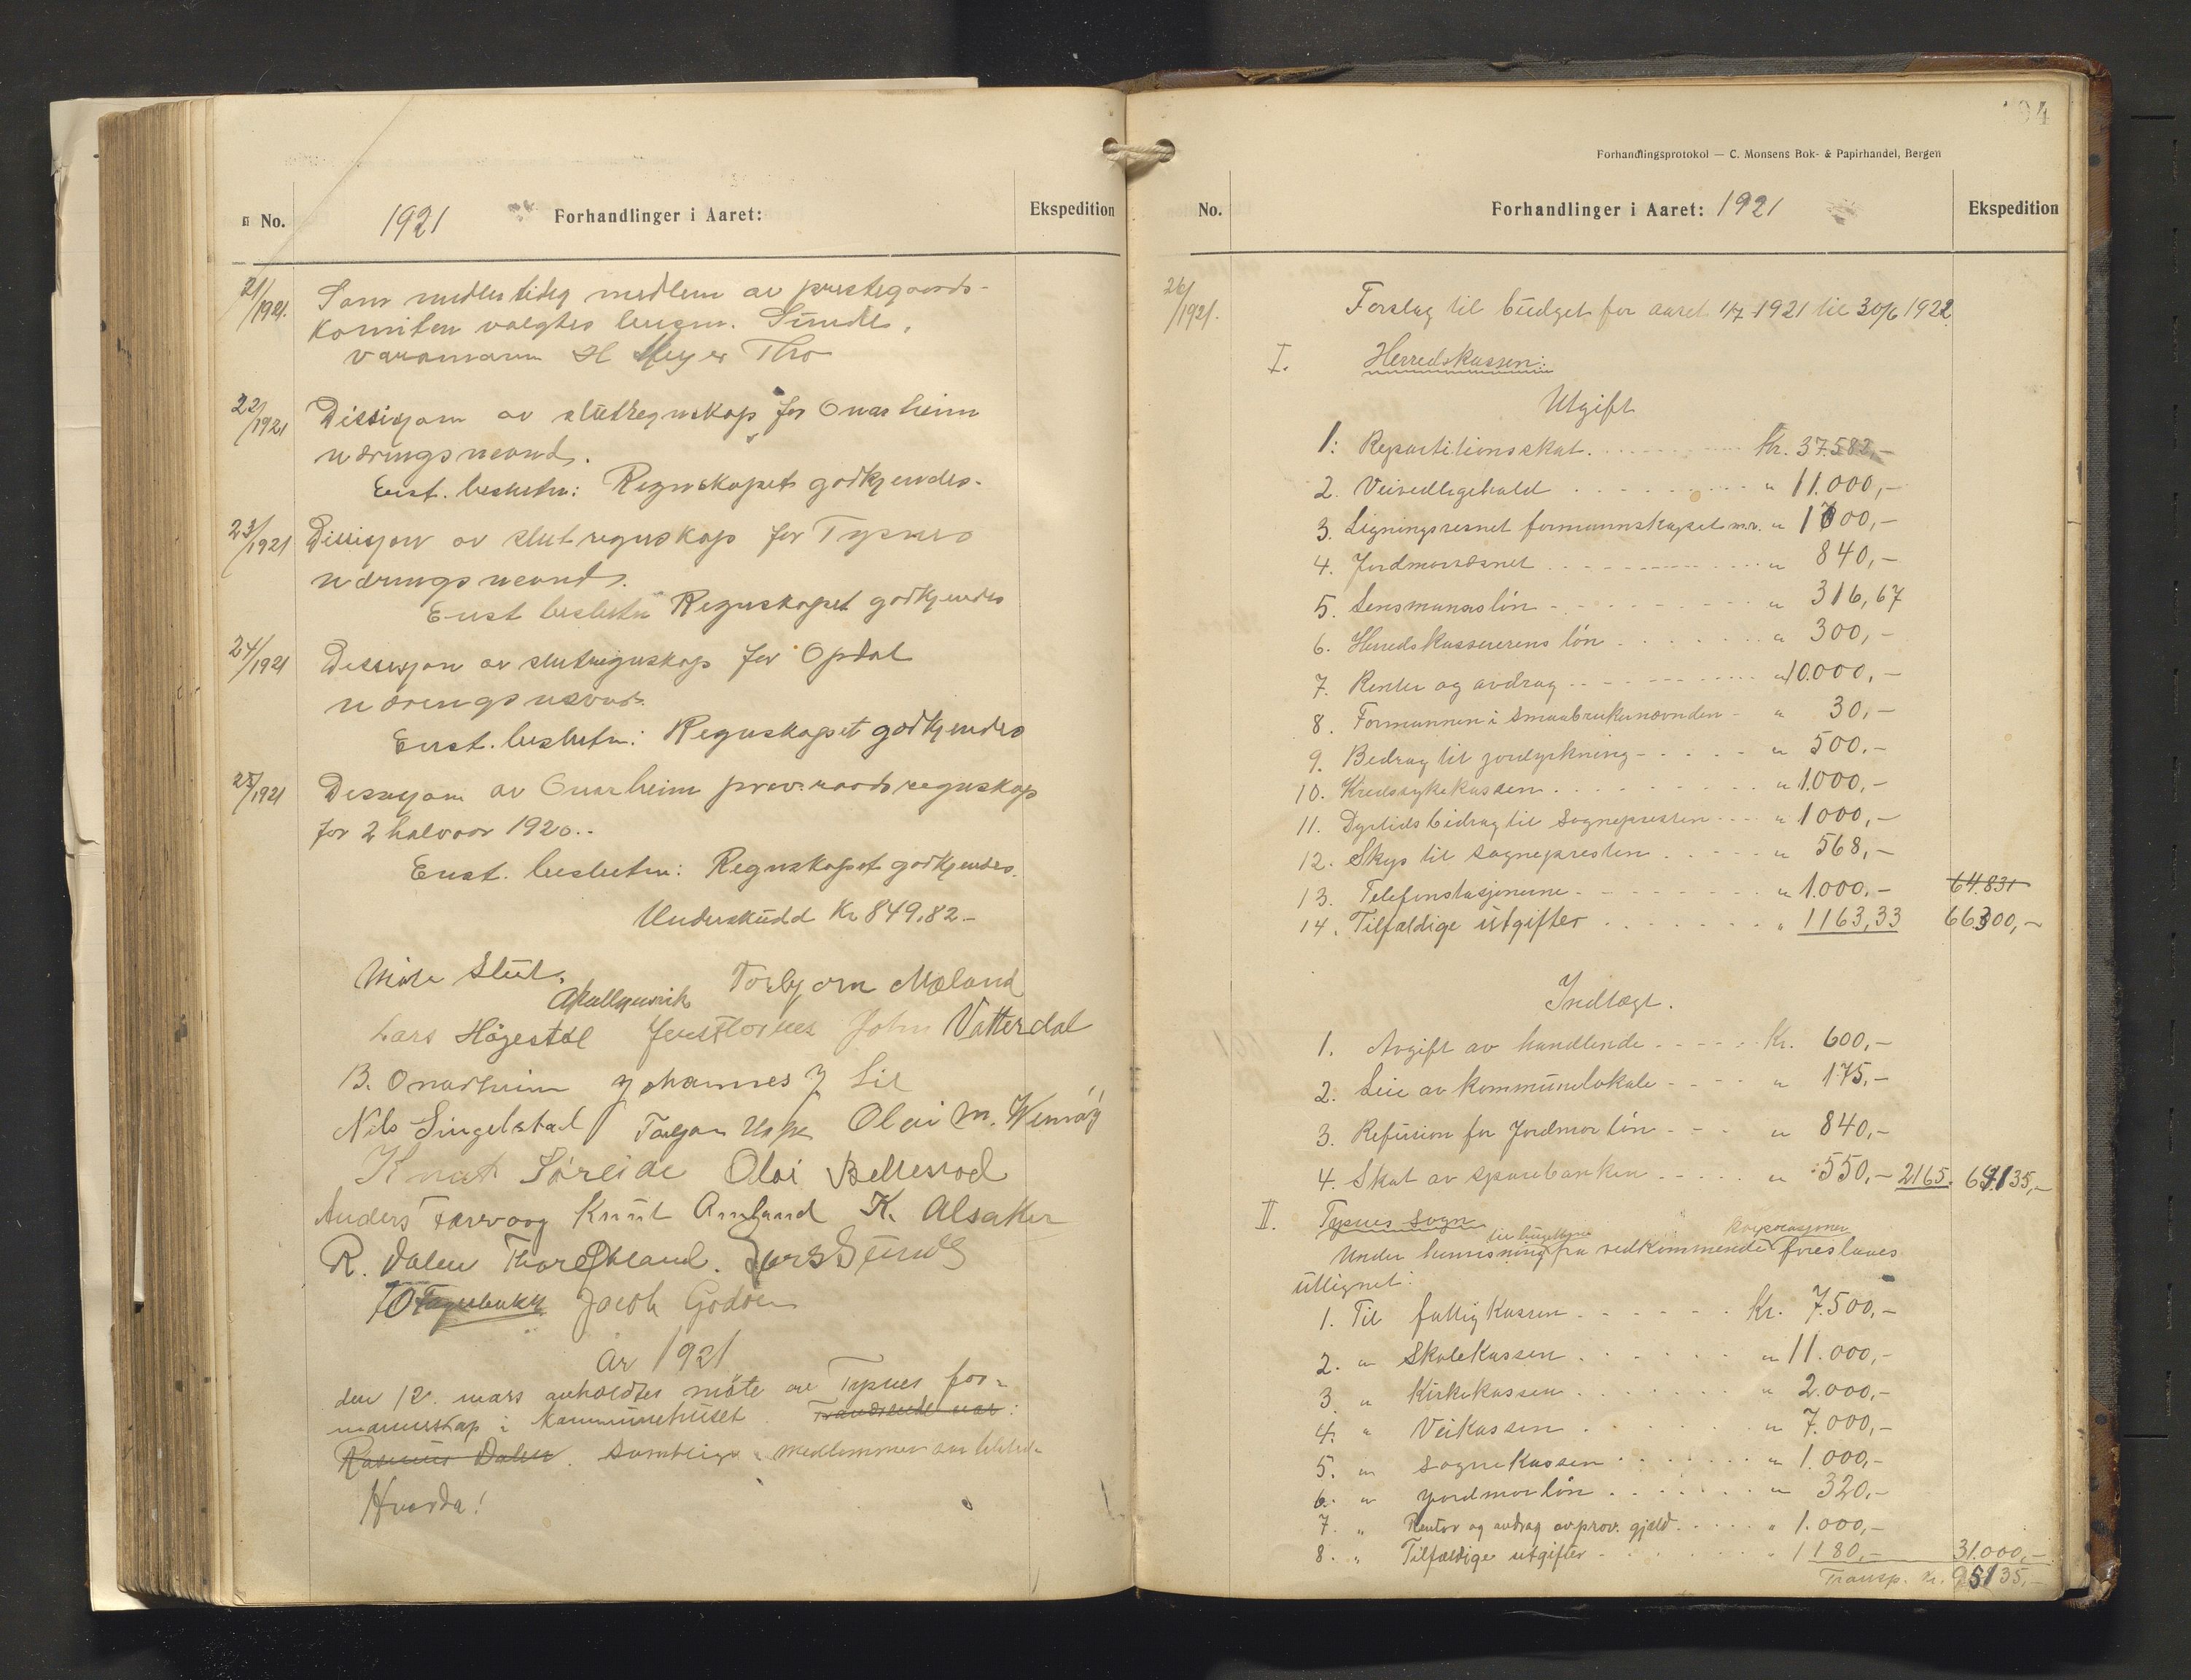 No.
1921
Forhandlinger i Aaret:
Ekspedition
21/1921.
Som midlertidig medlem av prestegaards-
komiteen valgtes lensm. Sunde,
varamann H Meyer Tho
22/1921
Desisjon av slutregnskap for Onarheim
næringsnevnd.
Enst. beslutn: Regnskapet godkjendes.
23/1921
Desisjon av slutregnskap for Tysnes
næringsnevnd.
Enst beslutn Regnskapet godkjendes
24/1921
Desisjon av slutregnskap for Opdal
næringsnevnd.
Enst. beslutn: Regnskapet godkjendes
25/1921
Desisjon av Onarheim prov.raads regnskap
for 2 halvaar 1920..
Enst. beslutn: Regnskapet godkjendes.
Underskudd Kr 849,82.-
Møte Slut.
Torbjørn Mæland
Lars Høgestøl Jens Flornes John Vatterdal
B. Onarheim Johannes J Lie
Nils Singelstad Torgar Olai M. Wernøy
Knut Søreide Olai Bellesvod
Anders Færvaag Knut Amland K. Alsaker
R. Dalen Thore Lars Sunde
Jacob Godøen
År 1921
den 12. mars avholdtes møte av Tysnes for-
mannskap i Kommunehuset. Fraværende var:
Rasmus Dalen. Samtlige medlemmer var tilstede
Hvorda!
194
Forhandlingsprotokol — C. Monsens Bok- & Papirhandel, Bergen
No.
Forhandlinger i Aaret: 1921
Ekspedition
26/1921.
Forslag til budget for aaret 1/7 1921 til 30/6 1922
I. Herredskassen:
Utgift
1: Repartitionsskat. Kr. 37.582,-
2. Veivedligehald " 11.000,-
3. Ligningsvesnet formannskapet m.v. " 1000,-
4. Jordmorvesnet " 840,-
5. Lensmannsløn " 316,67
6. Herredskassererens løn " 300,-
7. Renter og avdrag " 10.000,-
8. Formannen i smaabrukernevnden " 30,-
9. Bedrag til jordyrkning " 500.-
10. Kredssykekassen " 1.000,-
11. Dyrtidsbidrag til Sognepresten " 1000,-
12. Skys til sognepresten " 568,-
13. Telefonstasjonerne " 1.000.- 64.831
14. Tilfældige utgifter " 1163,33 66.300,-
Indtægt.
1. Avgift av handlende Kr. 600,-
2. Leie av kommunelokale " 175,-
3. Refusion for Jordmorløn " 840,-
4. Skat av sparebanken " 550,- 2165. 64.135,-
II. Tysnes Sogn
korporasjoner
Under henvisning fra vedkommende foreslaaes
utlignet:
1. Til fattigkassen Kr. 7.500,-
2. " Skolekassen " 11.000,-
3 " Kirkekassen " 2.000,-
4. " Veikassen " 7.000,-
5. " Sognekassen " 1.000,-
6. " Jordmorløn " 320,-
7. " Renter og avdrag av prov. gjæld " 1.000,-
8. " Tilfældige utgifter " 1180,- 31.000,-
Transp. Kr. 95135,-